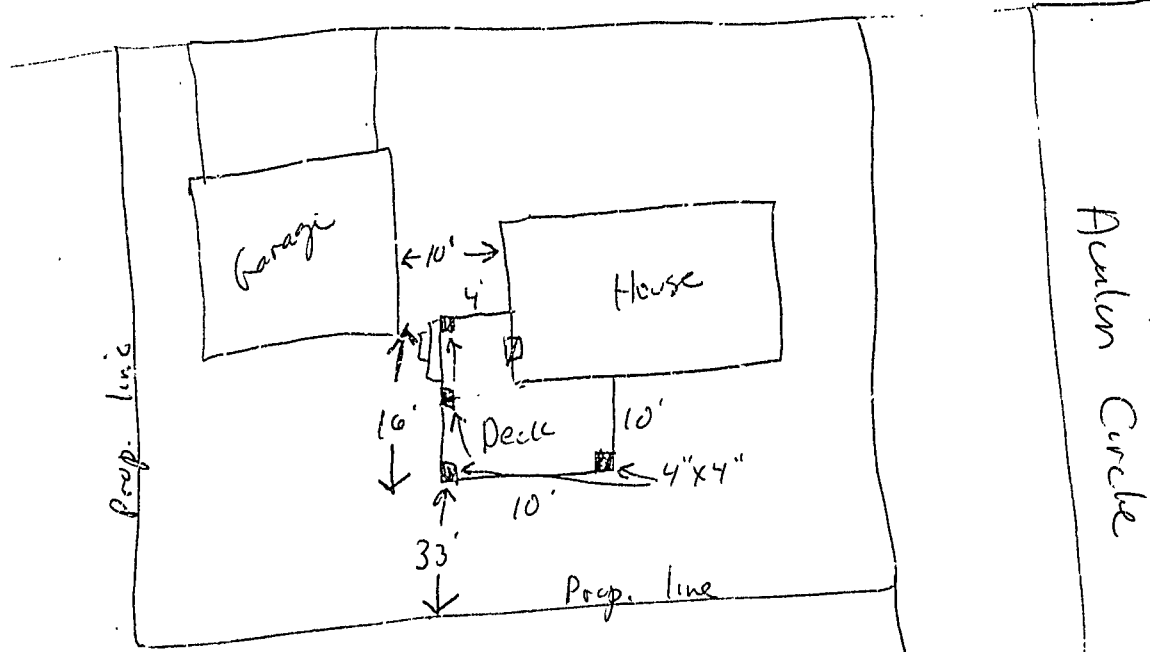 Garage
10'
House
4'
Prop. line
16'
Deck
10'
4"x4"
10'
33'
Prop. line
Circle